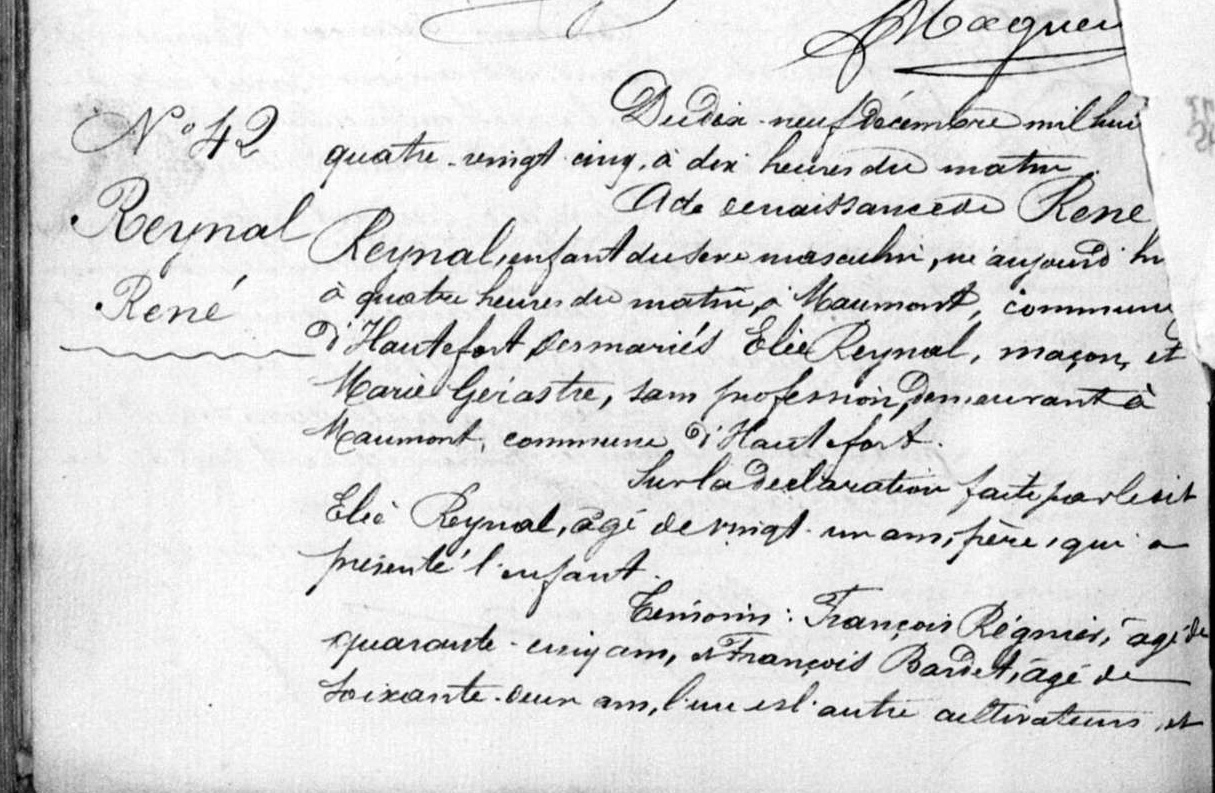 Macquer
N° 42
Reynal
René
Du dix-neuf décembre mil hui
quatre-vingt-cinq, à dix heures du matin.
Acte de naissance de René
Reynal, enfant du sexe masculin, né aujourd'hu
à quatre heures du matin, à Maumont, commune
d'Hautefort, des mariés Elie Reynal, maçon, et
Marie, sans profession, demeurant à
Maumont, commune d'Hautefort.
Sur la déclaration faite par le dit
Elie Reynal, âgé de vingt-un ans, père, qui a
présenté l'enfant.
Témoins: François Régnier, âgé de
quarante-cinq ans, et François Bardet, âgé de
soixante-deux ans, l'un et l'autre cultivateurs, et